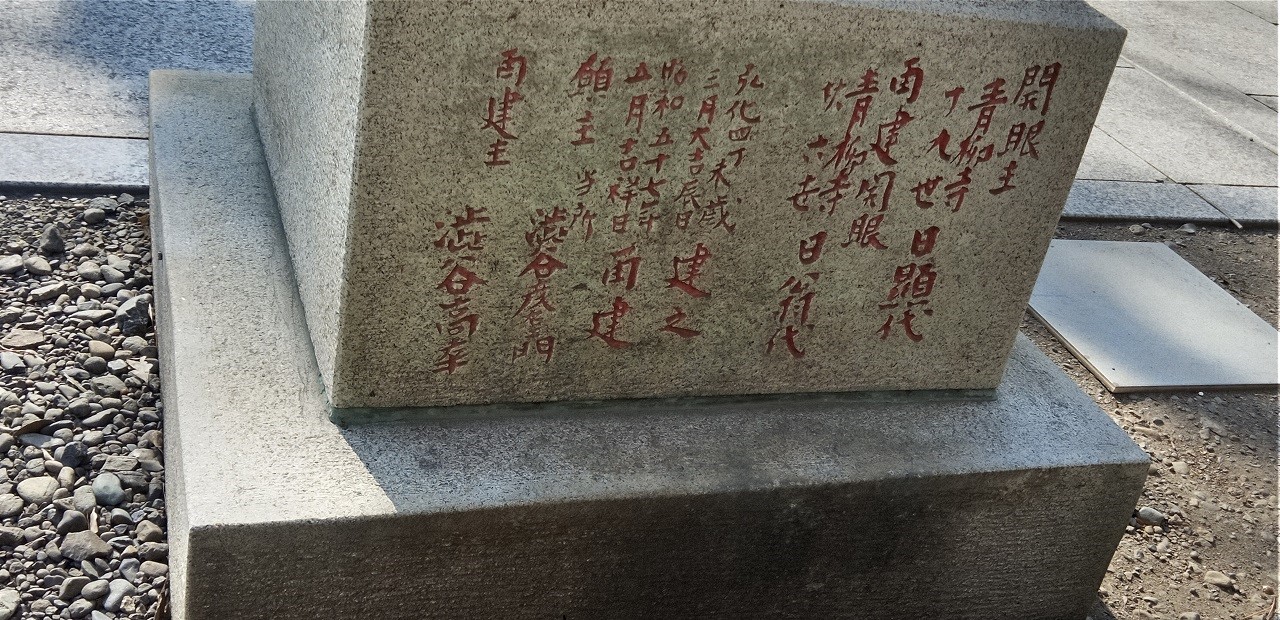 開眼主
青柳寺
十九世 日顕代
再建開眼
青柳寺
廿六世 日翁代
弘化四丁未歳
三月大吉辰日 建之
昭和五十七年
五月吉祥日 再建
願主 当所
澁谷 門
再建主 澁谷高